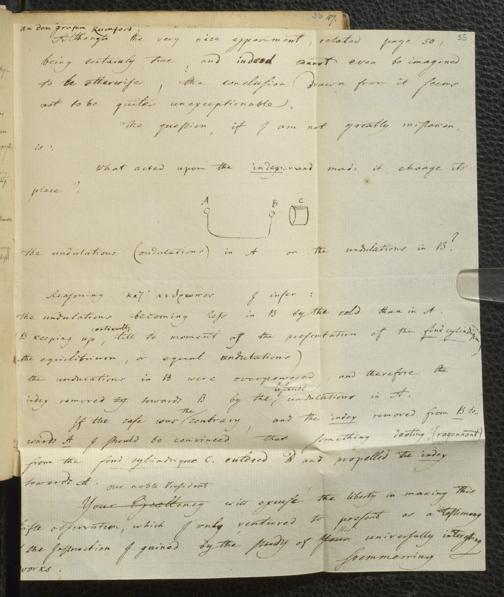 an den grafen Rumford.
Although the very nice experiment, related page 50,
being certainly true, and indeed cannot even be imagined
to be otherwise, the conclusion drawn from it seems
not to be quite unexceptionable.
The question, if I am not greatly mistaken,
is:
What acted upon the index, and made it change its
place?
A B C
the undulations (ondulations) in A. or the undulations in B?
Reasoning I infer:
the undulations becoming less in B by the cold than in A.
B keeping up, continually till to moment of the presentation of the
the equilibrium, or equal undulations)
the undulations in B were overpowered, and therefore the
index removed towards B by the undulations in A.
If the case was the contrary, and the index removed from B to-
wards A I should be convinced that something darting (rayonnant)
from the fond cylindrique C. entered B and propelled the index
towards A. our noble President
Your Excellency will excuse the liberty in making this
observation, which I only ventured to present as a testimony
of the instruction I gained by the study of universally interesting
works. Soemmerring
35